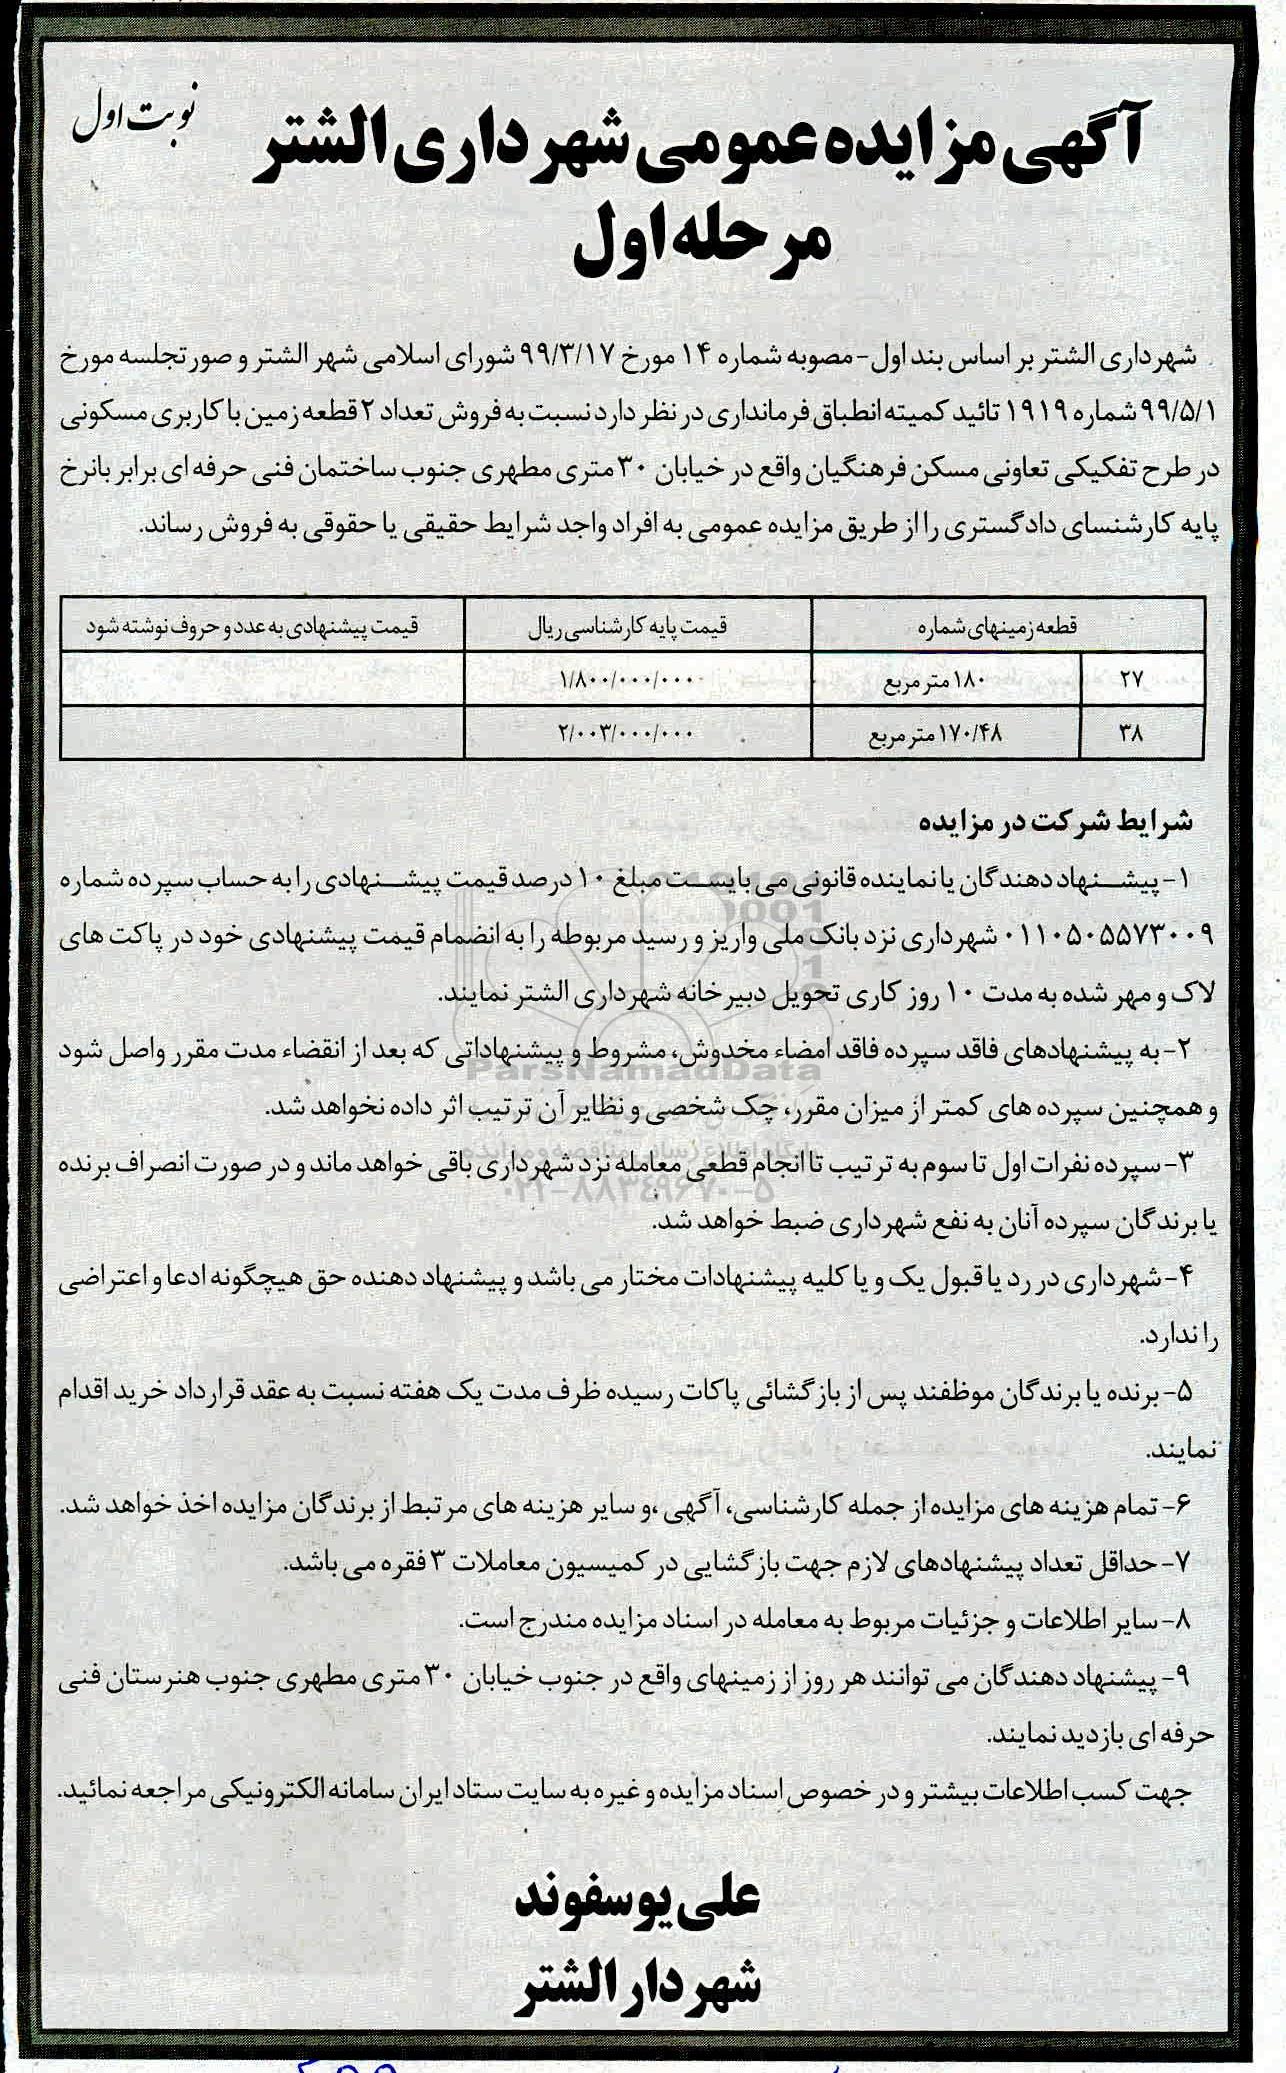 نوبت اول
آگهی مزایده عمومی شهرداری الشتر
مرحله اول
شهرداری الشتر بر اساس بند اول- مصوبه شماره ۱۴ مورخ ۹۹/۳/۱۷ شورای اسلامی شهر الشتر و صورتجلسه مورخ
۹۹/۵/۱ شماره ۱۹۱۹ تائید کمیته انطباق فرمانداری در نظر دارد نسبت به فروش تعداد ۲ قطعه زمین با کاربری مسکونی
در طرح تفکیکی تعاونی مسکن فرهنگیان واقع در خیابان ۳۰ متری مطهری جنوب ساختمان فنی حرفه ای برابر بانرخ
پایه کارشنسای دادگستری را از طریق مزایده عمومی به افراد واجد شرایط حقیقی یا حقوقی به فروش رساند.
قطعه زمینهای شماره | قیمت پایه کارشناسی ریال | قیمت پیشنهادی به عدد و حروف نوشته شود
۲۷ | ۱۸۰ متر مربع | ۱/۸۰۰/۰۰۰/۰۰۰
۳۸ | ۱۷۰/۴۸ متر مربع | ۲/۰۰۳/۰۰۰/۰۰۰
شرایط شرکت در مزایده
۱- پیشنهاد دهندگان یا نماینده قانونی می بایست مبلغ ۱۰ درصد قیمت پیشنهادی را به حساب سپرده شماره
۰۱۱۰۵۰۵۵۷۳۰۰۹ شهرداری نزد بانک ملی واریز و رسید مربوطه را به انضمام قیمت پیشنهادی خود در پاکت های
لاک و مهر شده به مدت ۱۰ روز کاری تحویل دبیرخانه شهرداری الشتر نمایند.
۲- به پیشنهادهای فاقد سپرده فاقد امضاء مخدوش، مشروط و پیشنهاداتی که بعد از انقضاء مدت مقرر واصل شود
و همچنین سپرده های کمتر از میزان مقرر، چک شخصی و نظایر آن ترتیب اثر داده نخواهد شد.
۳- سپرده نفرات اول تا سوم به ترتیب تا انجام قطعی معامله نزد شهرداری باقی خواهد ماند و در صورت انصراف برنده
یا برندگان سپرده آنان به نفع شهرداری ضبط خواهد شد.
۴- شهرداری در رد یا قبول یک و یا کلیه پیشنهادات مختار می باشد و پیشنهاد دهنده حق هیچگونه ادعا و اعتراضی
را ندارد.
۵- برنده یا برندگان موظفند پس از بازگشائی پاکات رسیده ظرف مدت یک هفته نسبت به عقد قرارداد خرید اقدام
نمایند.
۶- تمام هزینه های مزایده از جمله کارشناسی، آگهی ،و سایر هزینه های مرتبط از برندگان مزایده اخذ خواهد شد.
۷- حداقل تعداد پیشنهادهای لازم جهت بازگشایی در کمیسیون معاملات ۳ فقره می باشد.
۸- سایر اطلاعات و جزئیات مربوط به معامله در اسناد مزایده مندرج است.
۹- پیشنهاد دهندگان می توانند هر روز از زمینهای واقع در جنوب خیابان ۳۰ متری مطهری جنوب هنرستان فنی
حرفه ای بازدید نمایند.
جهت کسب اطلاعات بیشتر و در خصوص اسناد مزایده و غیره به سایت ستاد ایران سامانه الکترونیکی مراجعه نمائید.
علی یوسفوند
شهردار الشتر
ParsNamadData
۰۲۱-۸۸۳۴۹۶۷۰-۵